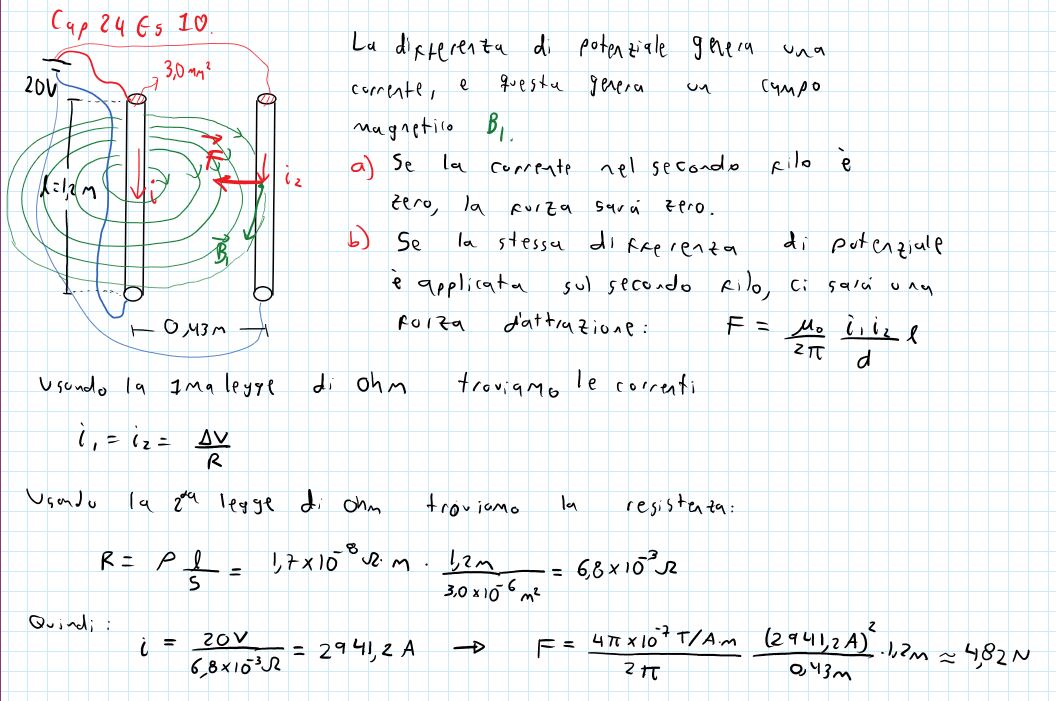 Cap 24 Es 10.
20V
3,0 mm²
l=1,2m
i
F
i₂
B₁
0,43m
La differenza di potenziale genera una
corrente, e questa genera un campo
magnetico B₁.
a) Se la corrente nel secondo filo è
zero, la forza sarà zero.
b) Se la stessa differenza di potenziale
è applicata sul secondo filo, ci sarà una
forza d'attrazione: F = μ₀/2π i₁i₂/d l
Usando la 1ma legge di Ohm troviamo le correnti
i₁ = i₂ = ΔV/R
Usando la 2da legge di Ohm troviamo la resistenza:
R = ρ l/S = 1,7×10⁻⁸ Ω·m · 1,2m/3,0×10⁻⁶ m² = 6,8×10⁻³ Ω
Quindi:
i = 20V/6,8×10⁻³Ω = 2941,2 A → F = 4π×10⁻⁷ T/A·m/2π (2941,2A)²/0,43m · 1,2m ≈ 4,82N